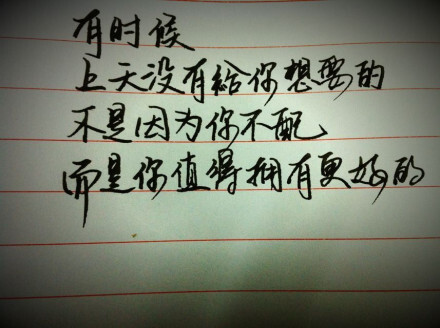 有时候
上天没有给你想要的
不是因为你不配
而是你值得拥有更好的